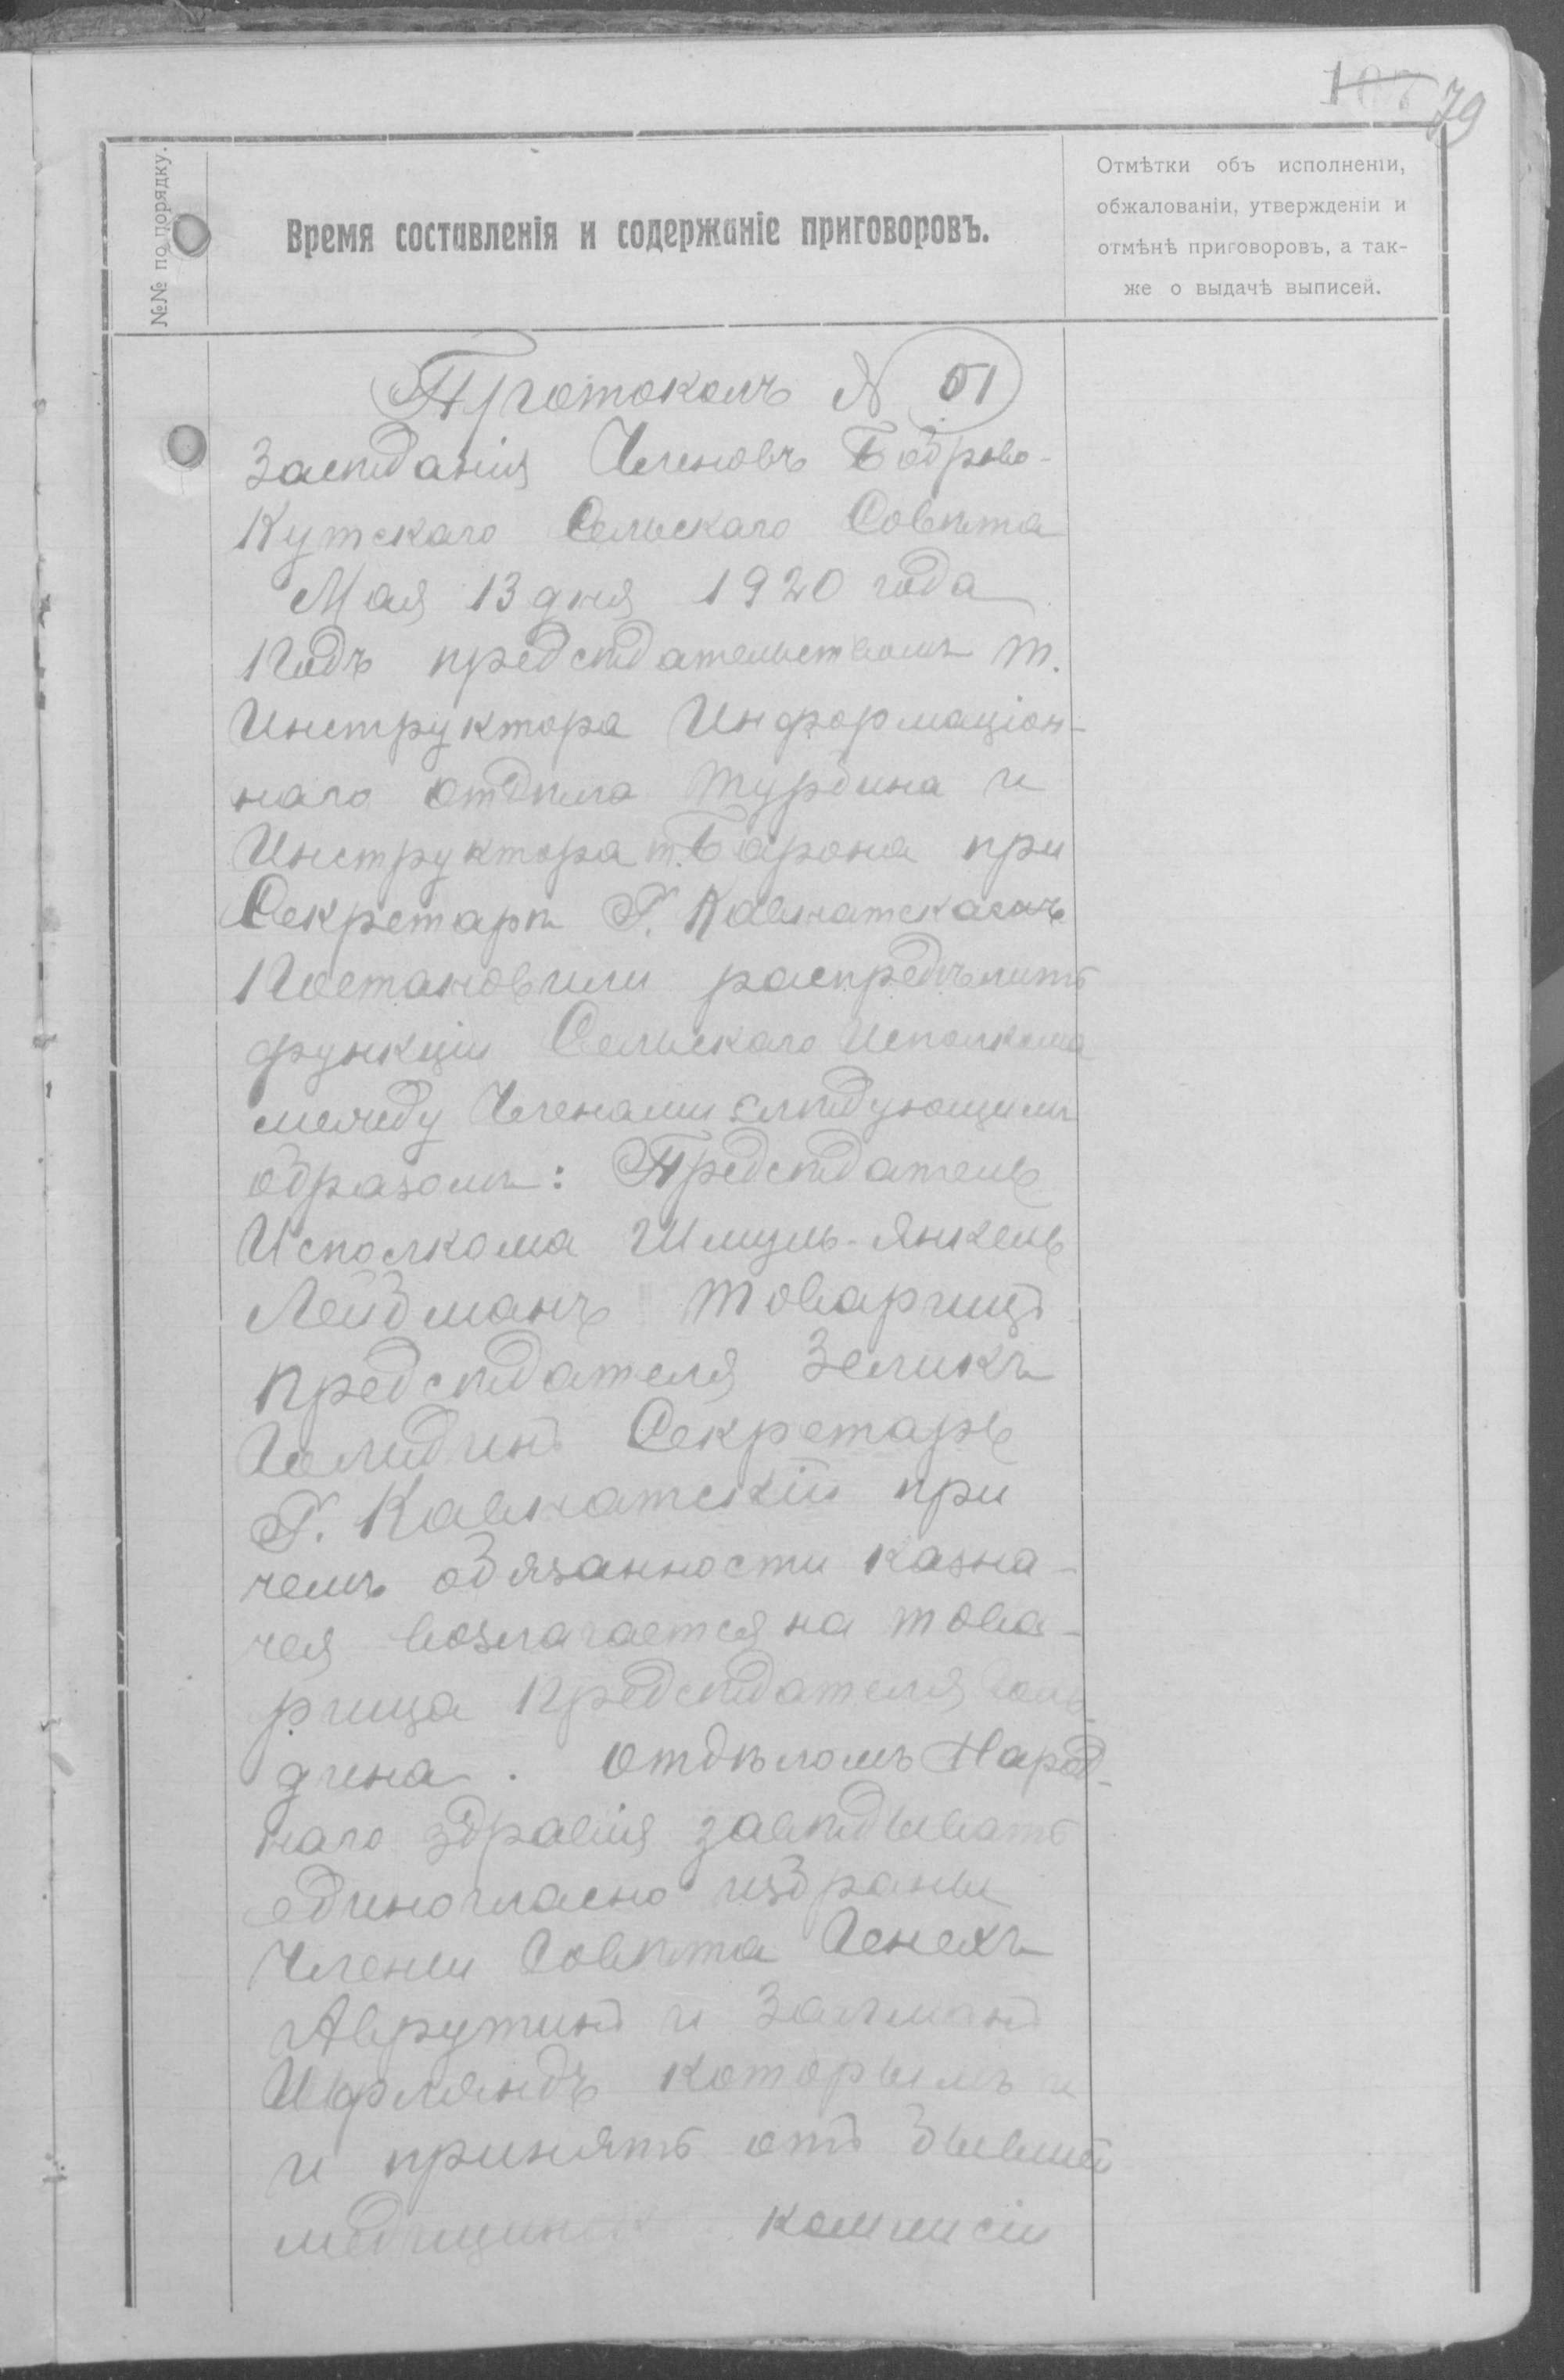 107 79
№№ по порядку.
Время составленія и содержаніе приговоровъ.
Отмѣтки объ исполненіи,
обжалованіи, утвержденіи и
отмѣнѣ приговоровъ, а так-
же о выдачѣ выписей.
Протоколъ N 51
Засѣданія Членовъ Боброво-
Кутскаго Сельскаго Совѣта
Мая 13 дня 1920 года
Подъ предсѣдательствомъ т.
Инструктора Информаціон-
наго отдѣла Турбина и
Инструктора т. Барона при
Секретарѣ Г. Кавнатскомъ
Постановили распредѣлить
функціи Сельскаго Исполкома
между Членами слѣдующимъ
образомъ: Предсѣдатель
Исполкома Шмуль-Янкель
Лейбманъ Товарищъ
предсѣдателя Зеликъ
Гольдинъ Секретарь
Г. Кавнатскій при
чемъ обязанности казна-
чея возлагается на това-
рища предсѣдателя Голь-
дина. Отдѣломъ Народ-
наго здравія завѣдывать
единогласно избраны
Члены Совѣта Генехъ
Аврутинъ и Залманъ
Ифляндъ которымъ и
и принять отъ бывшей
медицинск комисіи